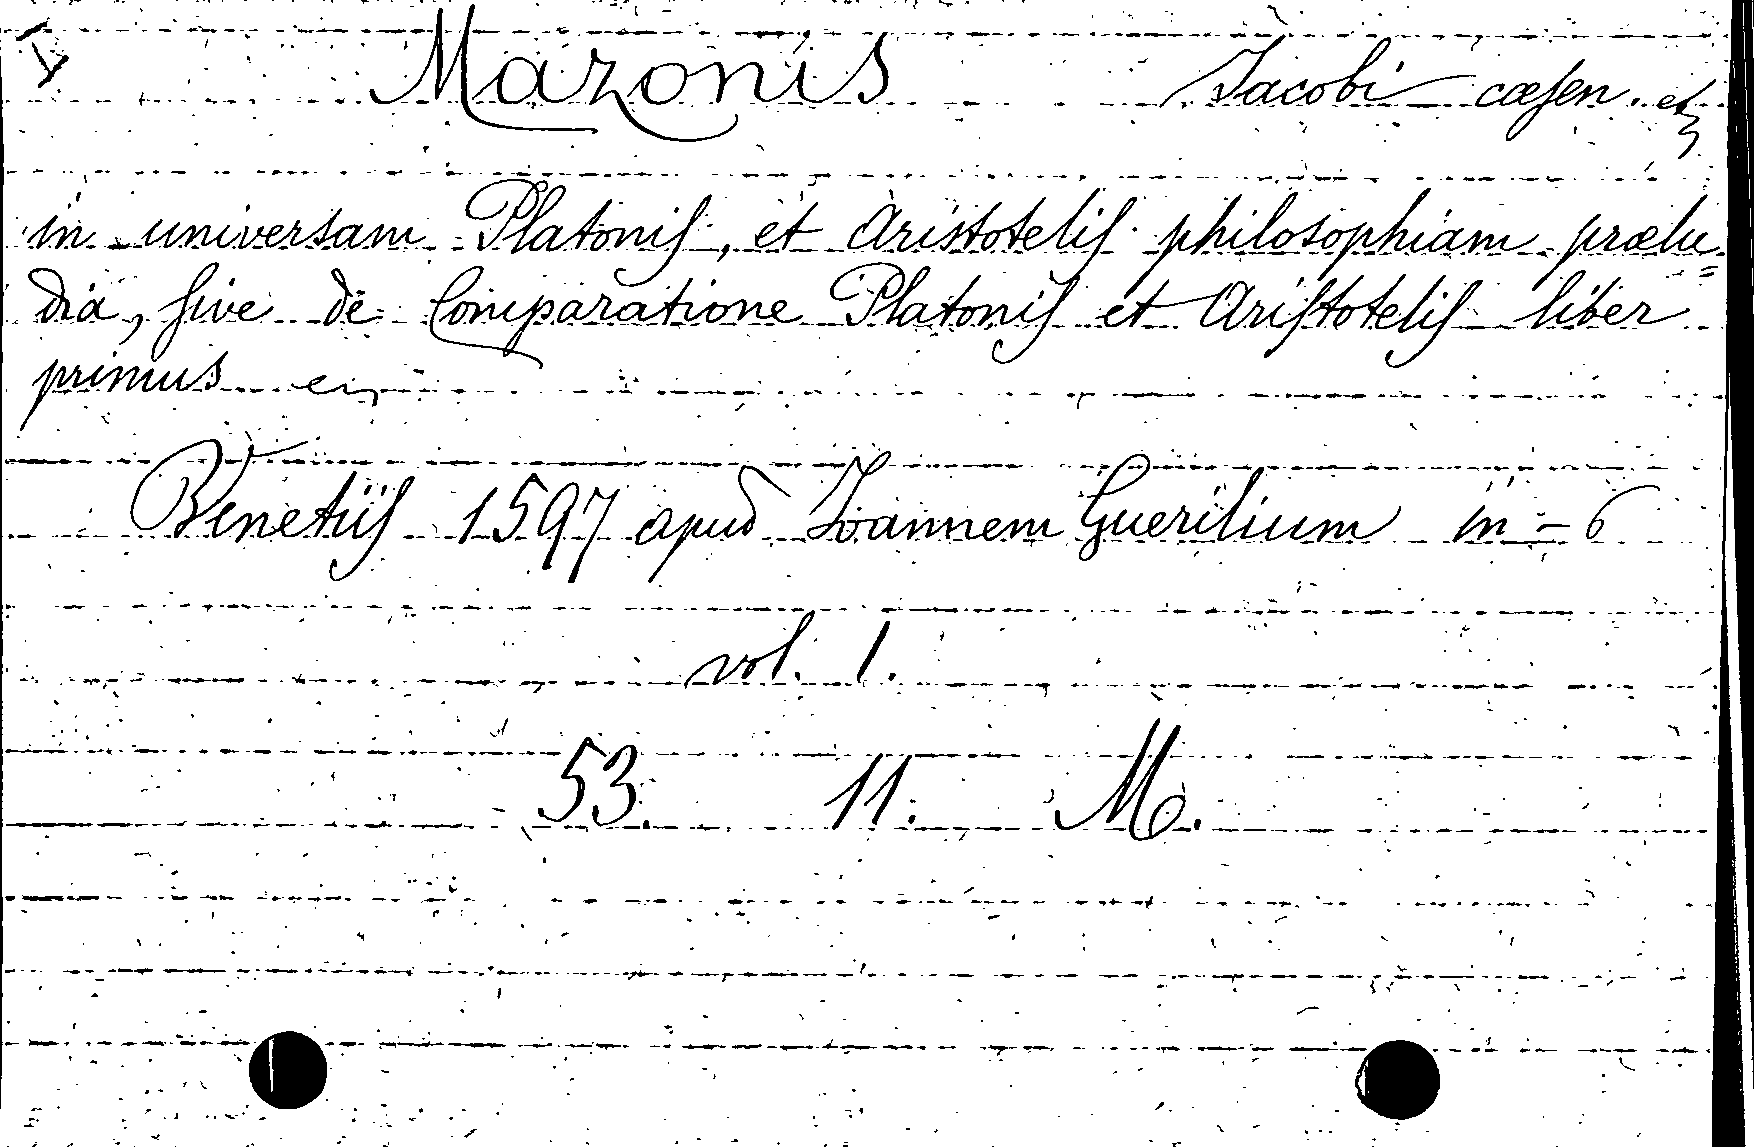 Mazonis Jacobi cæsen. etc
in universam Platonis, et Aristotelis philosophiam prælu=
dia, sive de Comparatione Platonis et Aristotelis liber
primus
Venetiis 1597 apud Ioannem Guerilium in-6
vol. 1.
53. 11. M.